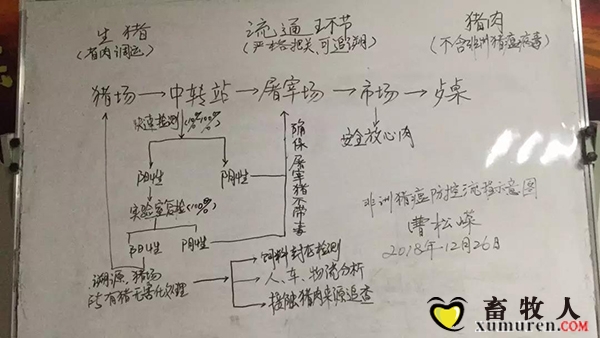 生猪
流通环节
猪肉
(省内调运)
(严格把关,可追溯)
(不含非洲猪瘟病毒)
猪场→中转站→屠宰场→市场→桌
快速检测(100%)
确保屠宰猪不带毒
安全放心肉
阳性
阴性
实验室复检(100%)
阳性
阴性
非洲猪瘟防控流程示意图
曹松嵘
2018年12月26日
溯源,猪场
所有猪无害化处理
饲料封存检测
人、车、物流分析
接触猪肉来源追查
畜牧人
xumuren.com